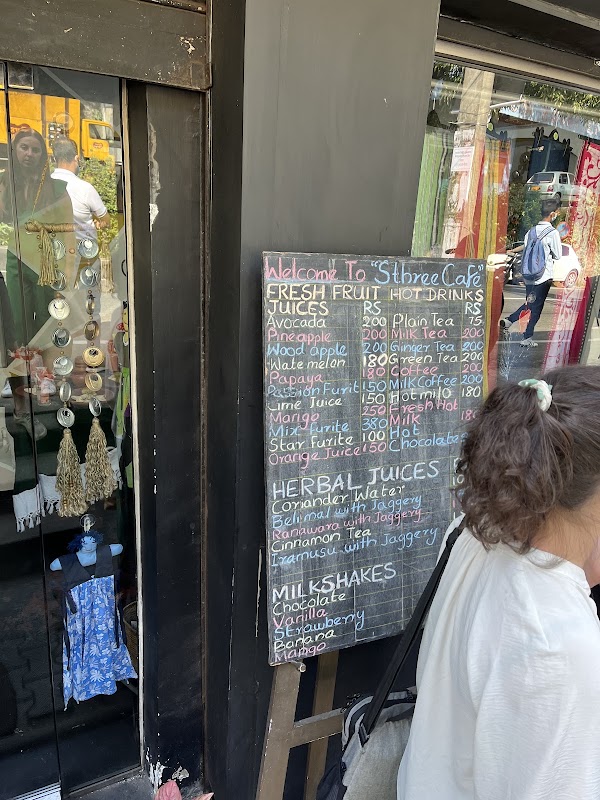 Welcome To "Sthree Cafe"
FRESH FRUIT
JUICES RS
Avocada 200
Pineapple 200
Wood apple 200
Wate melon 180
Papaya 180
Passion Furit 150
Lime Juice 150
Mango 250
Mix furite 380
Star furite 100
Orange Juice 150
HOT DRINKS
RS
Plain Tea 75
Milk Tea 200
Ginger Tea 200
Green Tea 200
Coffee 200
Milk Coffee 200
Hot milo 180
Fresh Hot
Milk 180
Hot
Chocolate
HERBAL JUICES
Coriander Water
Belimal with Jaggery
Ranawara with Jaggery
Cinnamon Tea
Iramusu with Jaggery
MILKSHAKES
Chocolate
Vanilla
Strawberry
Banana
Mango